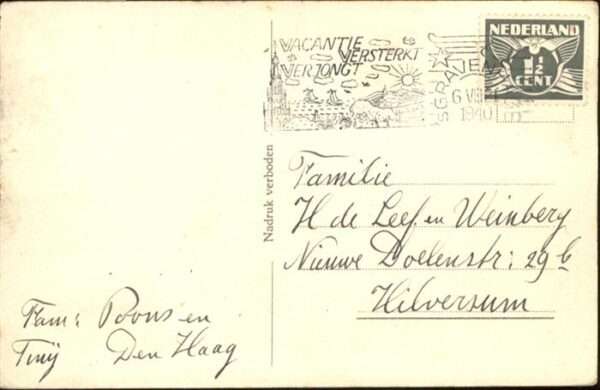 VACANTIE
VERSTERKT
VERJONGT
'SGRAVEN
6 VIII
1940
NEDERLAND
1½
CENT
Nadruk verboden
Familie
H de Leef en Weinberg
Nieuwe Doelenstr: 29b
Hilversum
Fam: Poons en
Tinij
Den Haag